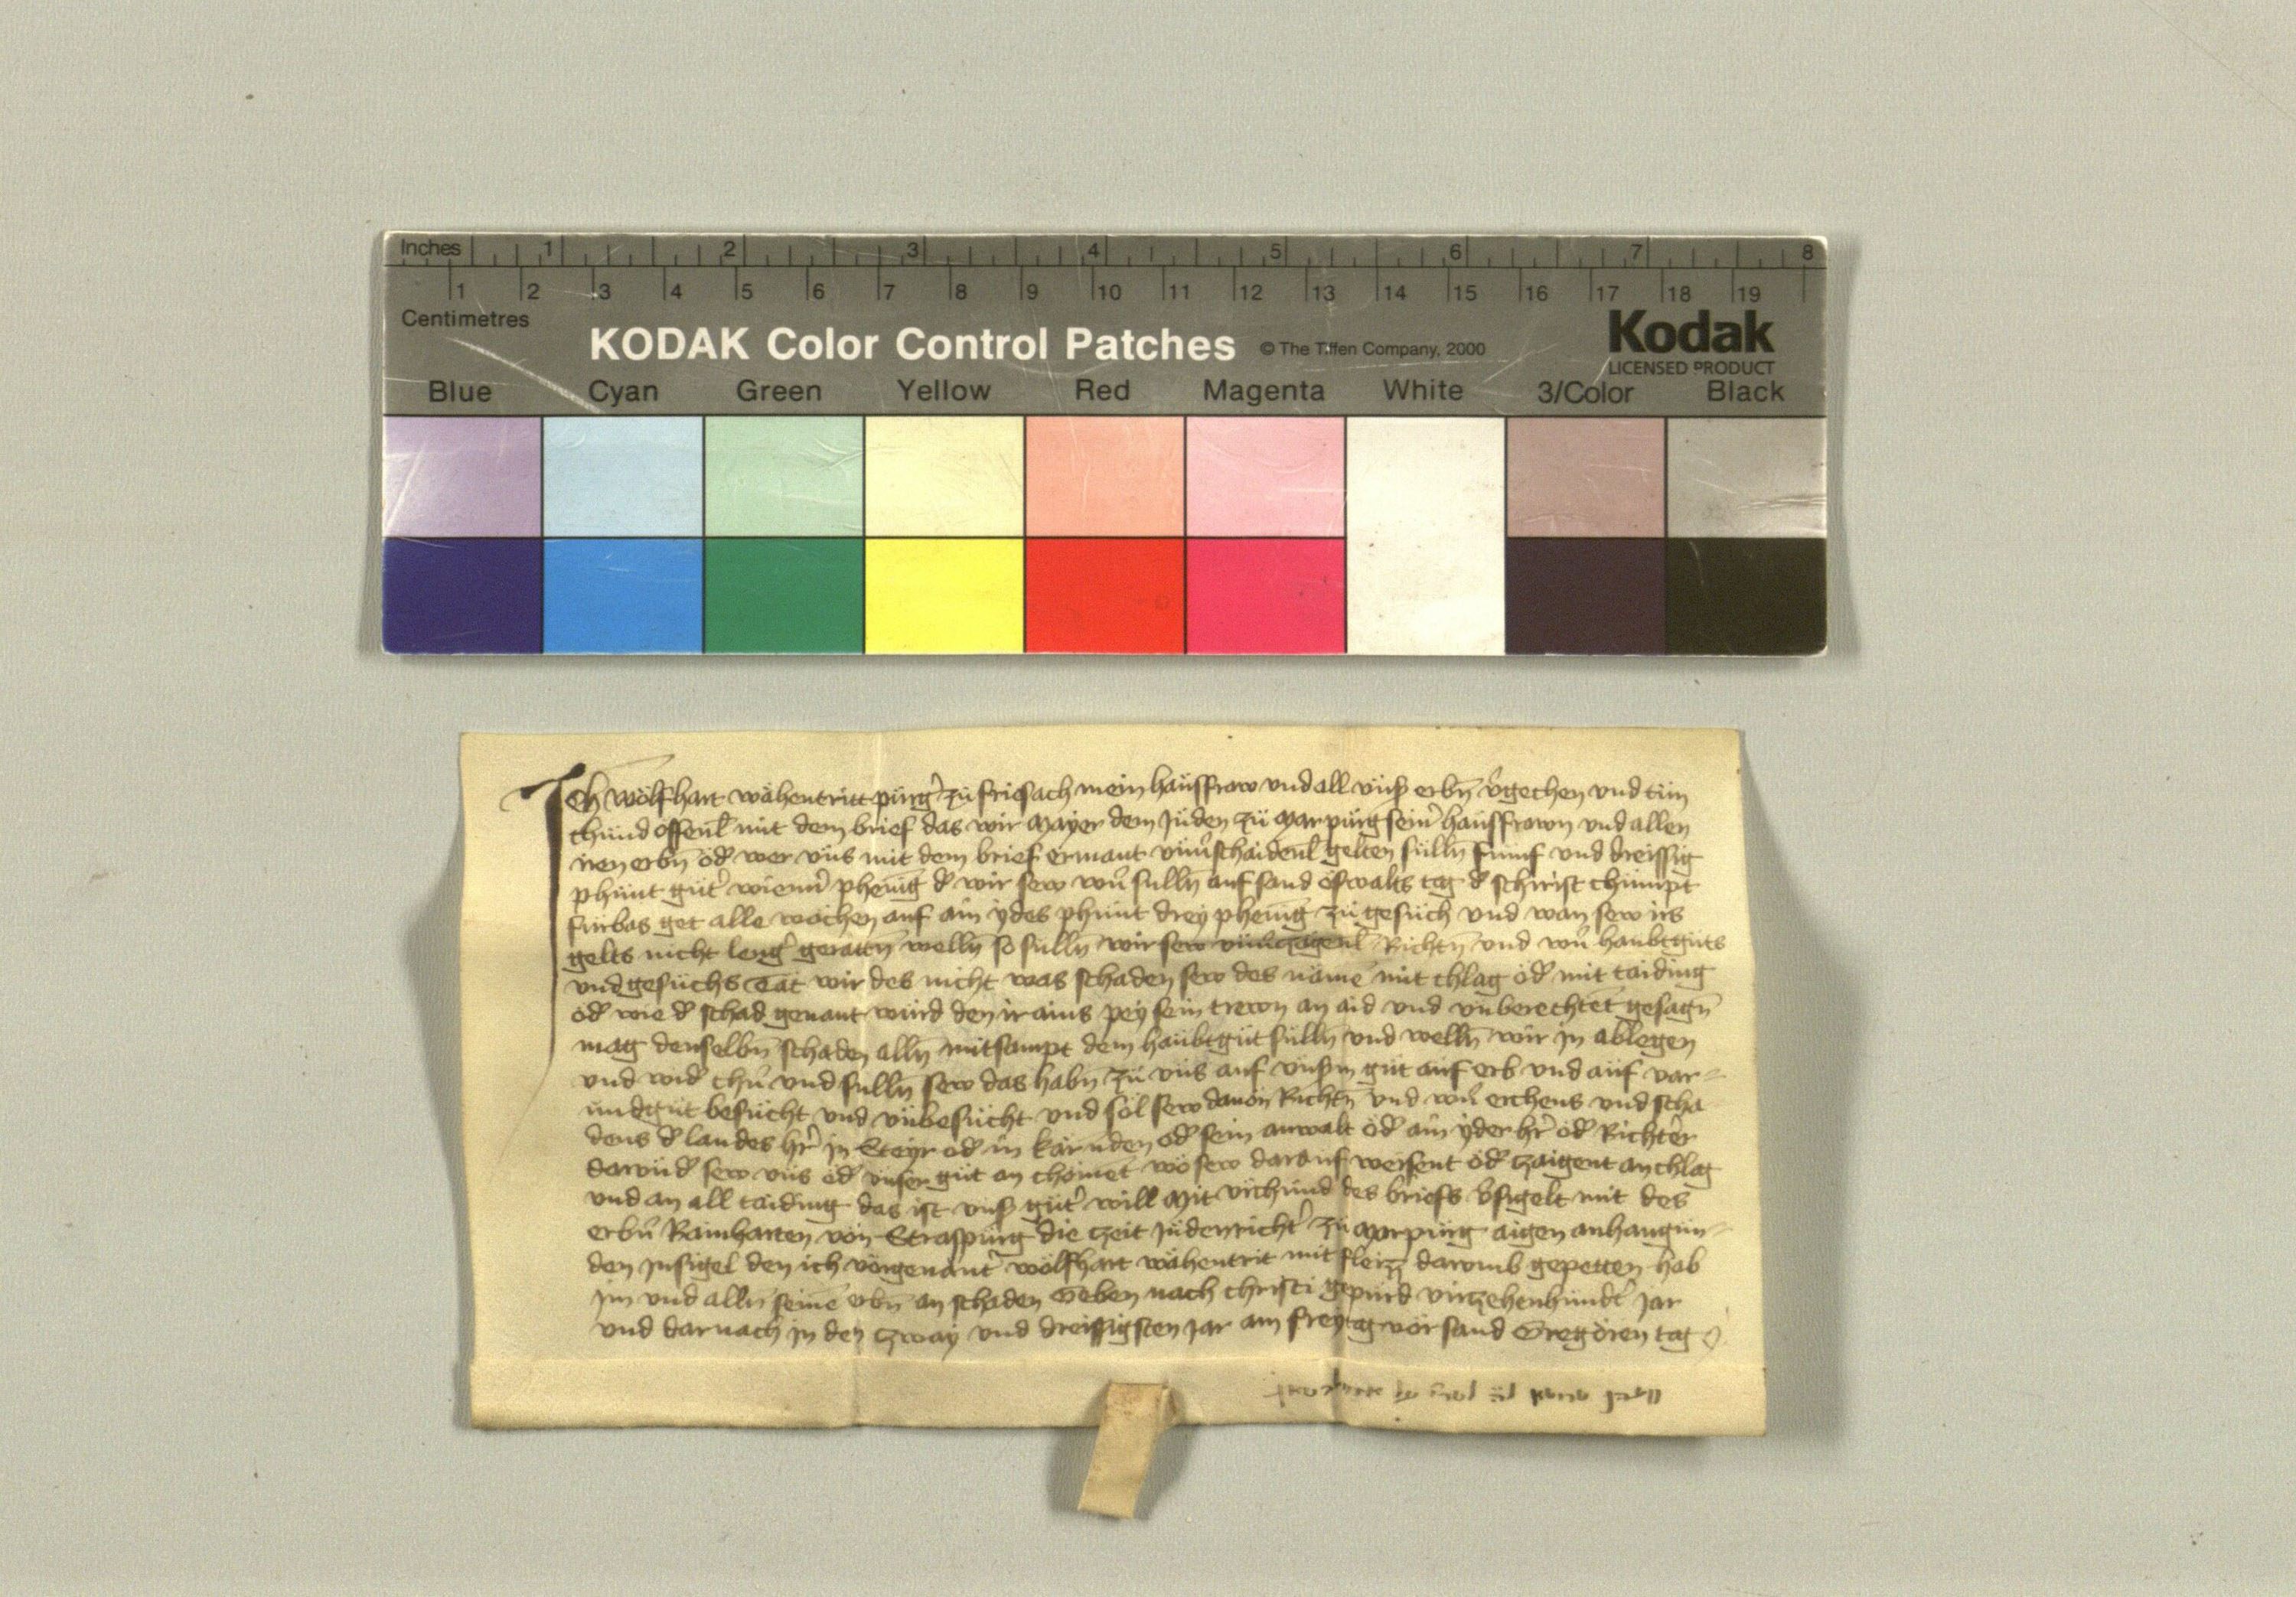 Inches 1 2 3 4 5 6 7 8
1 2 3 4 5 6 7 8 9 10 11 12 13 14 15 16 17 18 19
Centimetres
KODAK Color Control Patches © The Tiffen Company, 2000 Kodak
LICENSED PRODUCT
Blue Cyan Green Yellow Red Magenta White 3/Color Black
Ich wölfhart wähentritt pürg̉ zü friesach mein haüsfrow vnd all vns̉ erbn̄ v̉gechen vnd tün
chünd offenl̄ mit dem brief das wir Mayer dem Jüden zü Marpürg sein̉ haüsfrown vnd allen
iren erbn̄ öd̉ wer vns mit dem brief ermant vnủschaidenl̄ gelten sülln̄ fümf vnd dreissig
phünt güt̉ wienn̉ phenīg d̉ wir sew wủ sulln̄ auf sand öswalts tag d̉ schirist chümpt
fürbas get alle wochen auf ain ÿdes phünt dreÿ phenīg zü gesüch vnd wan sew irs
gelts nicht leng̉ geratn̄ welln̄ so sülln̄ wir sew Richtn̄ vnd wủ haubtgüts
vnd gesüchs Tät wir des nicht was schaden sew des näme̅ mit chlag öd̉ mit taiding
öd̉ wie d̉ schad genant würd den ir ains peÿ sein trewn an aid vnd vnberechtet gesagn̄
mag denselbn̄ schaden alln̄ mitsampt dem haübtgüt sülln̄ vnd welln̄ wir in ablegen
vnd wid̉ chẻ vnd sulln̄ sew das habn̄ zü vns auf vns̉m güt auf erb vnd aüf var=
ündgüt besücht vnd vnbesücht vnd söl sew dauön Richtn̄ vnd wủ erchens vnd scha
dens d̉ landes hr̉ in Steyr od̉ in kärnden od̉ sein anwalt öd̉ ain ÿder hr̉ öd̉ Richter
darund̉ sew vns öd̉ vnser güt an chömet wö sew darauf weisent öd̉ tzaigent an chlag
vnd an all taiding das ist vns̉ güt̉ will Mit vrchünd des briefs v̉sigelt mit des
erbn̉ Rainharten vön Straspürg die tzeit Jüdenricht̉ zü Marpürg aigen anhangün=
den Insigel den ich vörgenant̉ wölfhart wähentrit mit fleizz darvmb gepetten hab
im vnd alln̄ seine̅ erbn̄ an schaden Geben nach christi gepürd virtzehenhündt̉ Jar
vnd darnach in den tzway vnd dreissigsten Jar am freytag vör sand Gregören tag